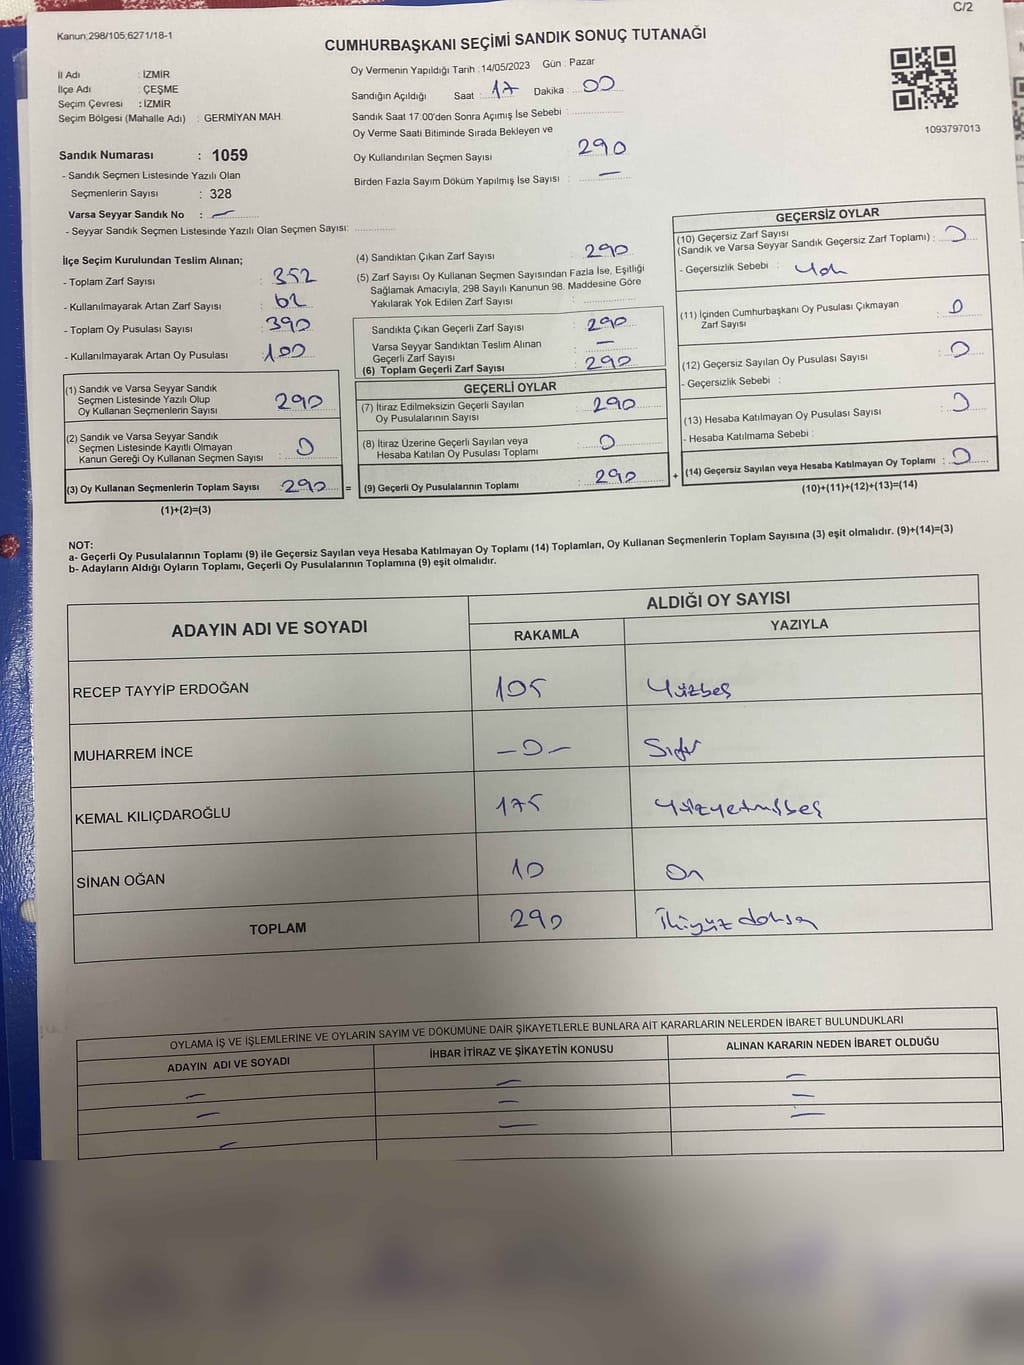 C/2
Kanun;298/105;6271/18-1
CUMHURBAŞKANI SEÇİMİ SANDIK SONUÇ TUTANAĞI
İl Adı : İZMİR
İlçe Adı : ÇEŞME
Seçim Çevresi : İZMİR
Seçim Bölgesi (Mahalle Adı) : GERMİYAN MAH.
Sandık Numarası : 1059
- Sandık Seçmen Listesinde Yazılı Olan
Seçmenlerin Sayısı : 328
Varsa Seyyar Sandık No : —
- Seyyar Sandık Seçmen Listesinde Yazılı Olan Seçmen Sayısı:
Oy Vermenin Yapıldığı Tarih : 14/05/2023 Gün : Pazar
Sandığın Açıldığı Saat : 17 Dakika : 00
Sandık Saat 17:00'den Sonra Açımış İse Sebebi :
Oy Verme Saati Bitiminde Sırada Bekleyen ve
Oy Kullandırılan Seçmen Sayısı 290
Birden Fazla Sayım Döküm Yapılmış İse Sayısı : —
1093797013
İlçe Seçim Kurulundan Teslim Alınan;
- Toplam Zarf Sayısı : 352
- Kullanılmayarak Artan Zarf Sayısı : 62
- Toplam Oy Pusulası Sayısı : 390
- Kullanılmayarak Artan Oy Pusulası : 100
(1) Sandık ve Varsa Seyyar Sandık
Seçmen Listesinde Yazılı Olup
Oy Kullanan Seçmenlerin Sayısı : 290
(2) Sandık ve Varsa Seyyar Sandık
Seçmen Listesinde Kayıtlı Olmayan
Kanun Gereği Oy Kullanan Seçmen Sayısı : 0
(3) Oy Kullanan Seçmenlerin Toplam Sayısı : 290 =
(1)+(2)=(3)
(4) Sandıktan Çıkan Zarf Sayısı : 290
(5) Zarf Sayısı Oy Kullanan Seçmen Sayısından Fazla İse, Eşitliği
Sağlamak Amacıyla, 298 Sayılı Kanunun 98. Maddesine Göre
Yakılarak Yok Edilen Zarf Sayısı :
Sandıkta Çıkan Geçerli Zarf Sayısı : 290
Varsa Seyyar Sandıktan Teslim Alınan
Geçerli Zarf Sayısı : —
(6) Toplam Geçerli Zarf Sayısı : 290
GEÇERLİ OYLAR
(7) İtiraz Edilmeksizin Geçerli Sayılan
Oy Pusulalarının Sayısı : 290
(8) İtiraz Üzerine Geçerli Sayılan veya
Hesaba Katılan Oy Pusulası Toplamı : 0
(9) Geçerli Oy Pusulalarının Toplamı : 290 +
GEÇERSİZ OYLAR
(10) Geçersiz Zarf Sayısı
(Sandık ve Varsa Seyyar Sandık Geçersiz Zarf Toplamı) : 0
- Geçersizlik Sebebi : Yok
(11) İçinden Cumhurbaşkanı Oy Pusulası Çıkmayan
Zarf Sayısı : 0
(12) Geçersiz Sayılan Oy Pusulası Sayısı : 0
- Geçersizlik Sebebi :
(13) Hesaba Katılmayan Oy Pusulası Sayısı : 0
- Hesaba Katılmama Sebebi :
(14) Geçersiz Sayılan veya Hesaba Katılmayan Oy Toplamı : 0
(10)+(11)+(12)+(13)=(14)
NOT:
a- Geçerli Oy Pusulalarının Toplamı (9) ile Geçersiz Sayılan veya Hesaba Katılmayan Oy Toplamı (14) Toplamları, Oy Kullanan Seçmenlerin Toplam Sayısına (3) eşit olmalıdır. (9)+(14)=(3)
b- Adayların Aldığı Oyların Toplamı, Geçerli Oy Pusulalarının Toplamına (9) eşit olmalıdır.
ADAYIN ADI VE SOYADI ALDIĞI OY SAYISI
RAKAMLA YAZIYLA
RECEP TAYYİP ERDOĞAN 105 Yüzbeş
MUHARREM İNCE —0— Sıfır
KEMAL KILIÇDAROĞLU 175 Yüzyetmişbeş
SİNAN OĞAN 10 On
TOPLAM 290 İkiyüz doksan
OYLAMA İŞ VE İŞLEMLERİNE VE OYLARIN SAYIM VE DÖKÜMÜNE DAİR ŞİKAYETLERLE BUNLARA AİT KARARLARIN NELERDEN İBARET BULUNDUKLARI
ADAYIN ADI VE SOYADI İHBAR İTİRAZ VE ŞİKAYETİN KONUSU ALINAN KARARIN NEDEN İBARET OLDUĞU
— — —
— — —
— — —